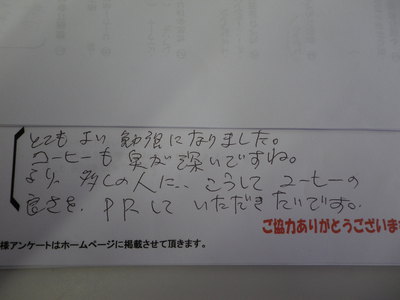 とてもよい勉強になりました。
コーヒーも奥が深いですね。
より多くの人に、こうしてコーヒーの
良さを、PRしていただきたいです。
ご協力ありがとうございま
様アンケートはホームページに掲載させて頂きます。